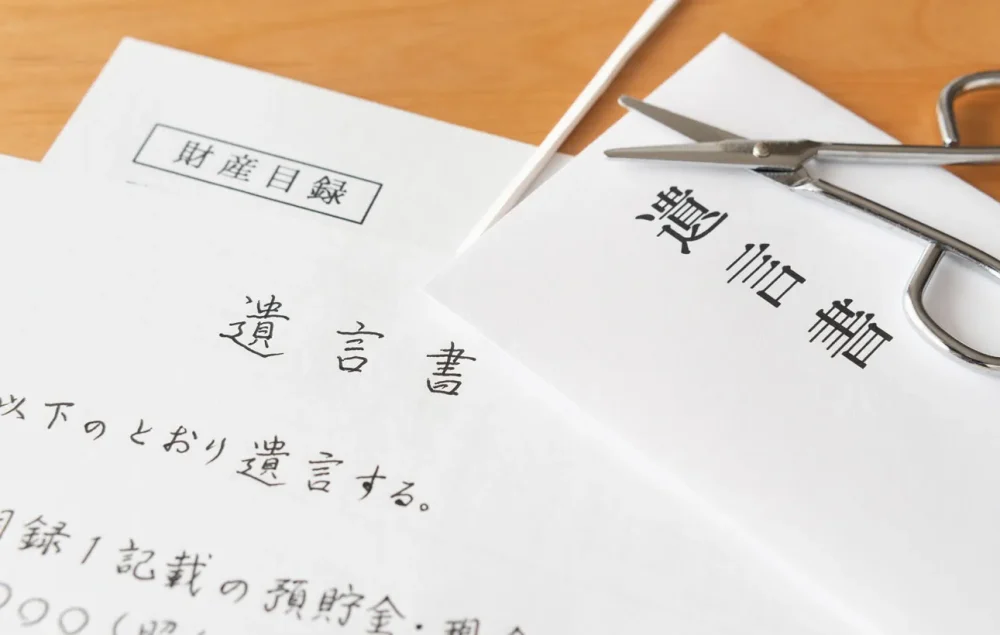 財産目録
遺言書
以下のとおり遺言する。
目録1記載の預貯金・現金
〇〇〇(昭
遺言書